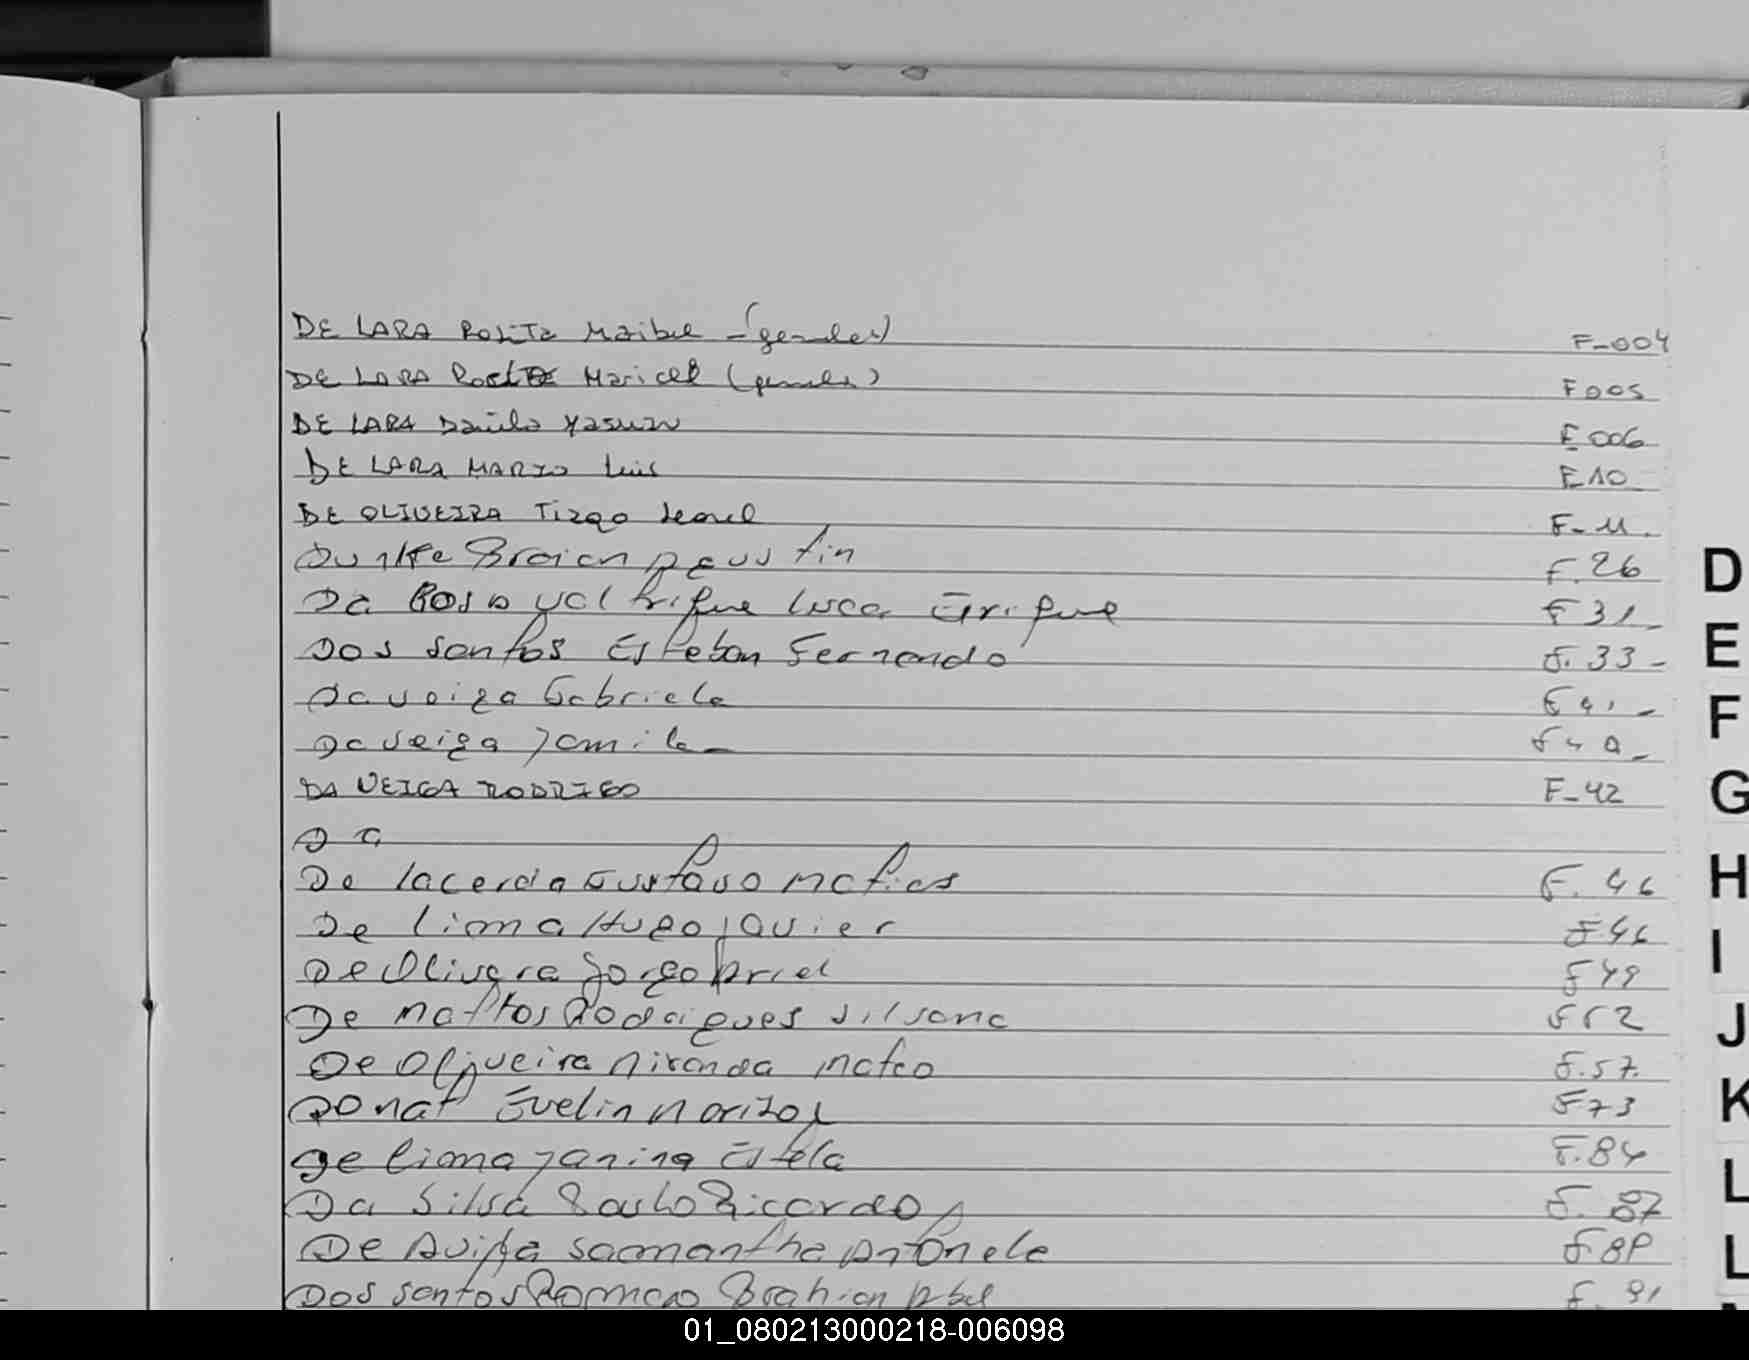 DE LARA Maibel - (gemeler) F-004
DE LARA Maricel (gemela) F005
DE LARA Danilo Yasmin F006
DE LARA MARIO Luis F10
DE OLIVEIRA Tiago Leonel F-11.
Dunke Braian Agustin F.26
Da Rosa Luca F31
Dos Santos Esteban Fernando F.33-
Da veiga Gabriela F41-
Da veiga Jamila
DA VEIGA RODRIGO F-42
Da
De lacerda Gustavo Matias F.46
De lima Hugo Javier F46
De Olivera F49
De Mattos Rodrigues Silvana F52
De Oliveira Miranda Mateo F.57.
Donat Evelin Marisol F73
De lima Janina Estela F.84
Da Silva Paulo Ricardo F.87
De Avila Samantha Antonela F89
Dos Santos Brahian Abel F.91
D
E
F
G
H
I
J
K
L
L
01_080213000218-006098